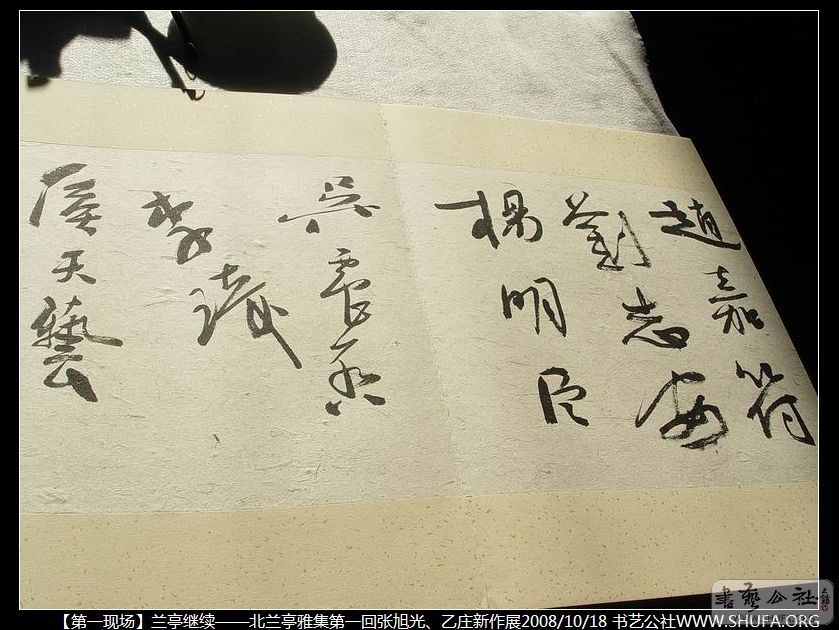 趙嘉符
劉志安
楊明臣
吳震
李
天藝
書藝公社
【第一现场】兰亭继续——北兰亭雅集第一回张旭光、乙庄新作展2008/10/18 书艺公社WWW.SHUFA.ORG